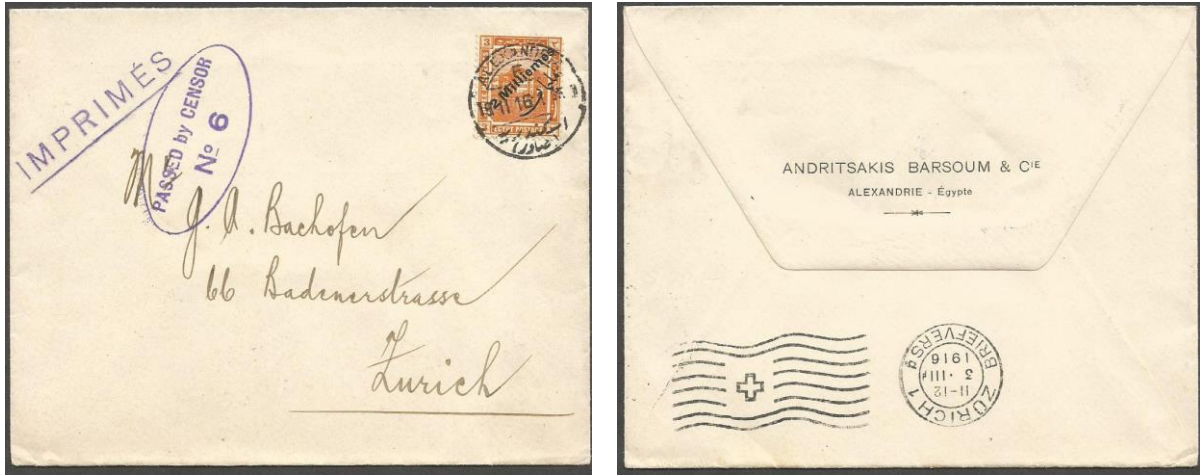 IMPRIMÉS
PASSED by CENSOR
Nº 6
3
ALEXAND
2 Milliemes
II 16
EGYPT POSTAGE
J. A. Bachofen
66 Badenerstrasse
Zurich
ANDRITSAKIS BARSOUM & CIE
ALEXANDRIE - Égypte
ZÜRICH 1
11-12
3 · III
1916
BRIEFVERSd.